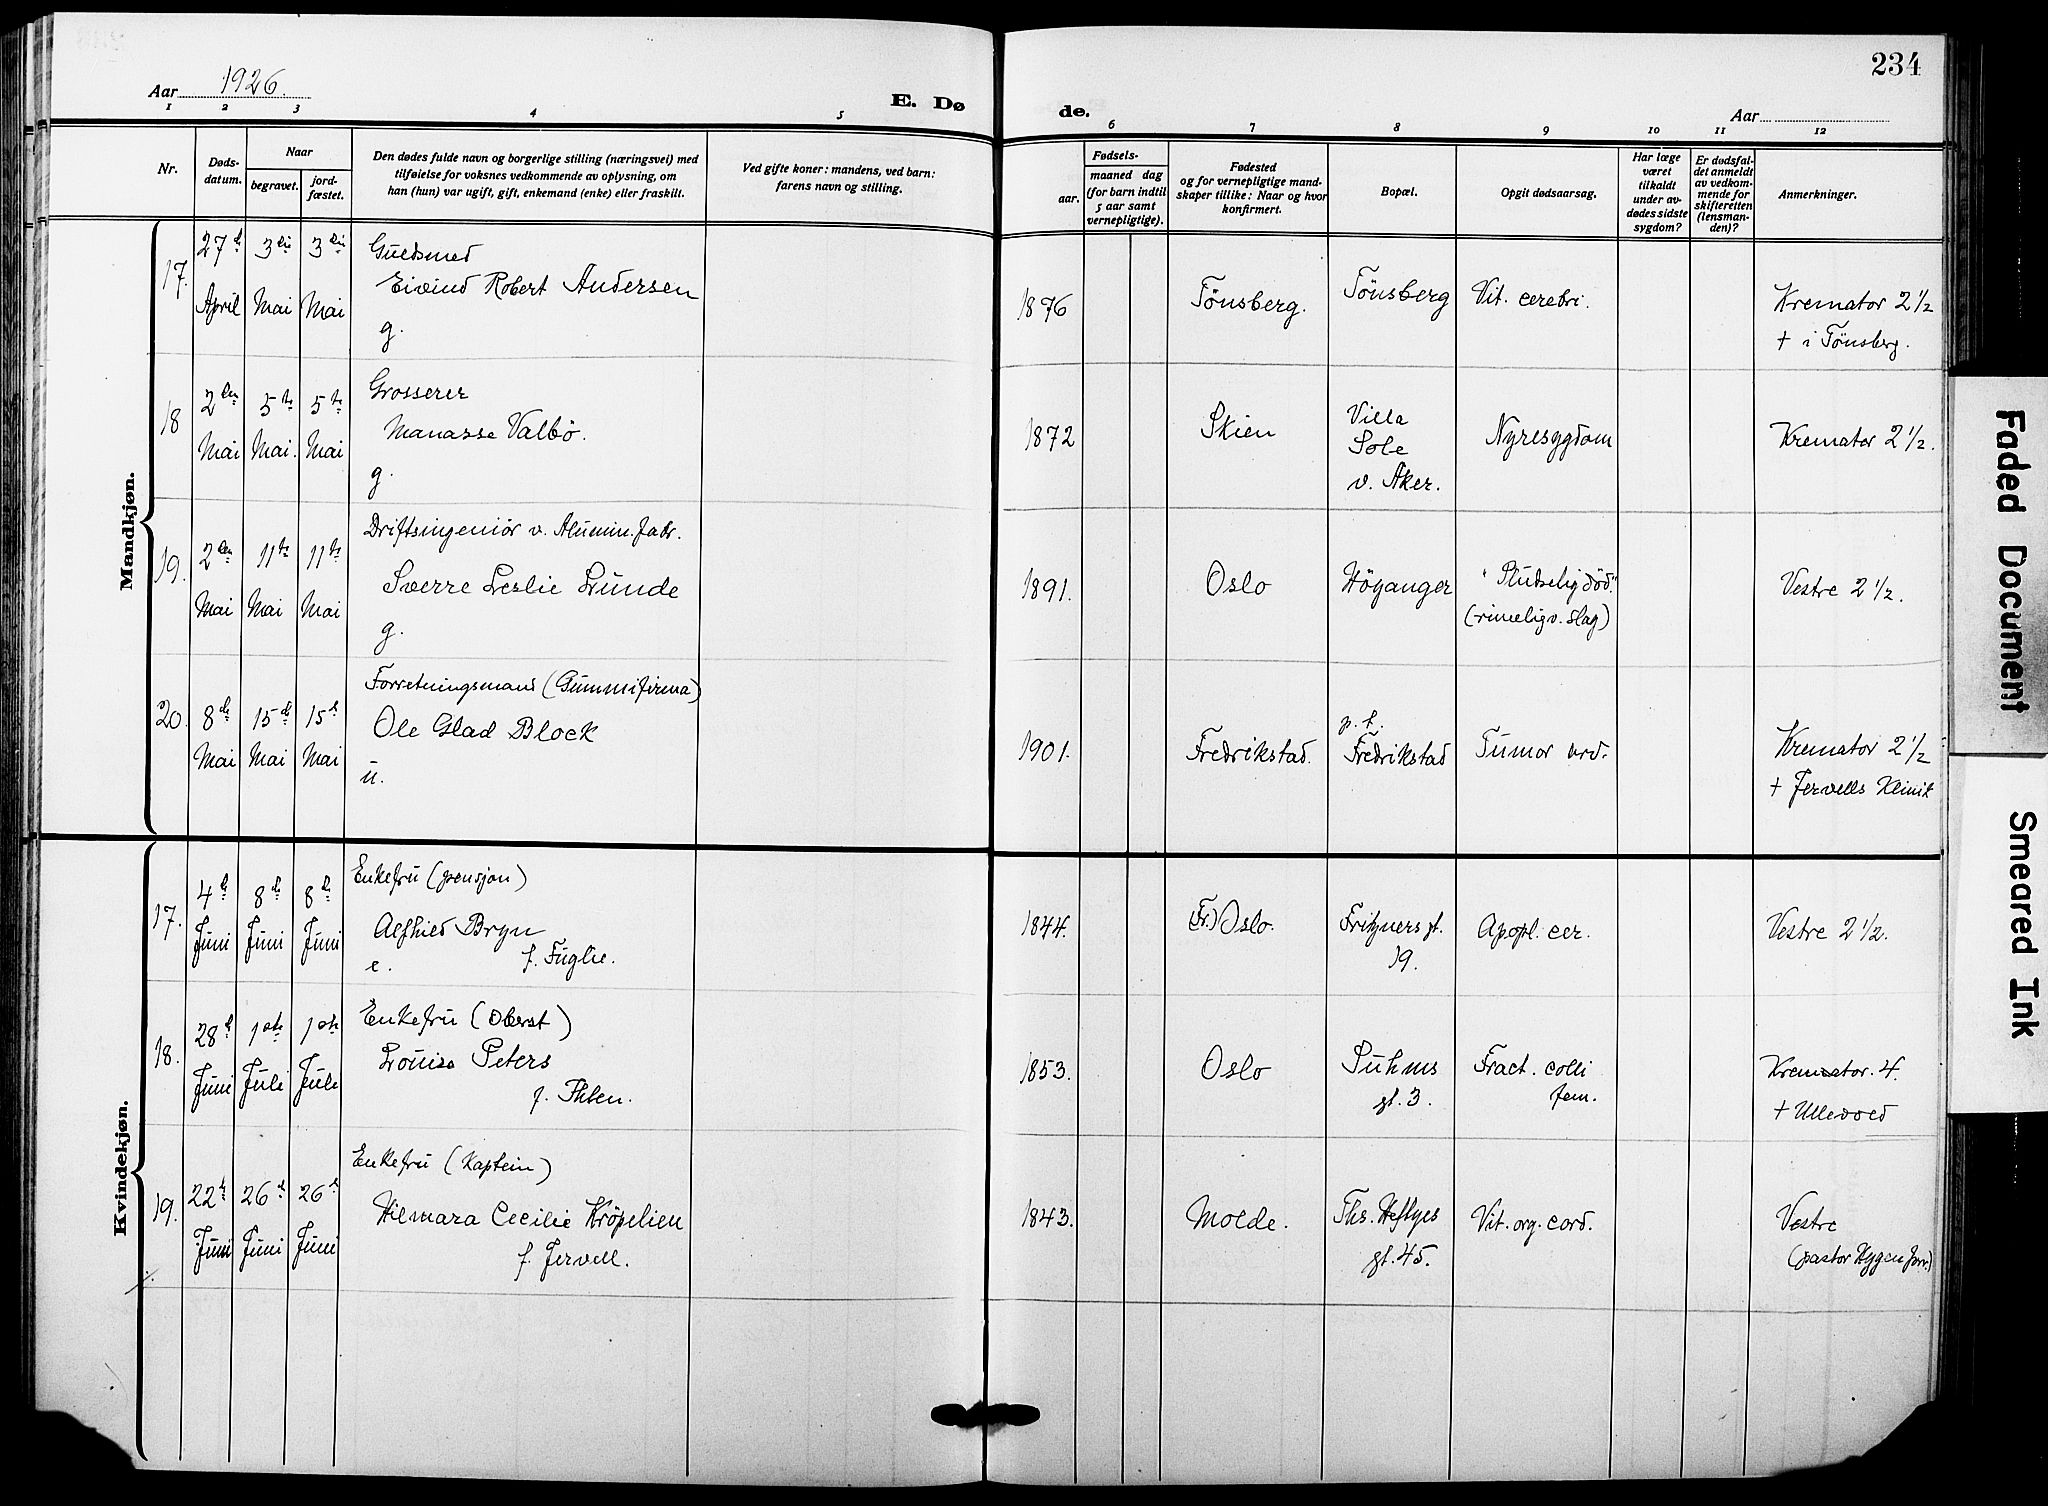 234
Aar 1926.
E. Dø
de.
Aar
1 2 3 4 5 6 7 8 9 10 11 12
Nr.
Døds-
datum.
Naar
begravet.
jord-
fæstet.
Den dødes fulde navn og borgerlige stilling (næringsvei) med
tilføielse for voksnes vedkommende av oplysning, om
han (hun) var ugift, gift, enkemand (enke) eller fraskilt.
Ved gifte koner: mandens, ved barn:
farens navn og stilling.
Fødsels-
aar.
maaned dag
(for barn indtil
5 aar samt
vernepligtige).
Fødested
og for vernepligtige mand-
skaper tillike: Naar og hvor
konfirmert.
Bopæl.
Opgit dødsaarsag.
Har læge
været
tilkaldt
under av-
dødes sidste
sygdom?
Er dødsfal-
det anmeldt
av vedkom-
mende for
skifteretten
(lensman-
den)?
Anmerkninger.
Mandkjøn.
17.
27de
April
3die
Mai
3die
Mai
Guldsmed
Eivind Robert Andersen
g.
1876
Tönsberg.
Tönsberg
Vit. cerebri.
Kremator 2 1/2
+ i Tönsberg.
18
2den
Mai
5te
Mai.
5te
Mai
Grosserer
Manasse Valbö.
g.
1872
Skien
Villa
Sole
v. Aker.
Nyresygdom
Kremator 2 1/2.
19.
2den
Mai
11te
Mai
11te
Mai
Driftsingeniör v. Alumin. fabr.
Sverre Leslie Lunde
g.
1891.
Oslo
Höyanger
"Pludselig död."
(rimeligv. slag)
Vestre 2 1/2.
20.
8de
Mai
15de
Mai
15d
Mai
Forretningsmand (Gummifirma)
Ole Glad Block
u.
1901.
Fredrikstad.
p. t.
Fredrikstad
Tumor
Kremator 2 1/2
+ Jervells Klinik
Kvindekjøn.
17.
4de
Juni
8de
Juni
8de
Juni
Enkefru (pensjon)
Alfhild Bryn
e. f. Fuglie.
1844.
(Fr.) Oslo.
Fritzners gt.
19.
Apopl. cer.
Vestre 2 1/2.
18.
28d
Juni
1ste
Juli
1ste
Juli
Enkefru (Oberst)
Louise Peters
f. Ihlen.
1853.
Oslo
Suhms
gt. 3.
Fract. colli
fem.
Kremator. 4.
+ Ullevold
19.
22de
Juni
26d
Juni
26d
Juni
Enkefru (Kaptein)
Hilmara Cecilie Kröpelien
f. Jervell.
1843.
Molde.
Ths. Heftyes
gt. 45.
Vit. org. cord.
Vestre
(pastor Hygen forr.)
Faded Document
Smeared Ink